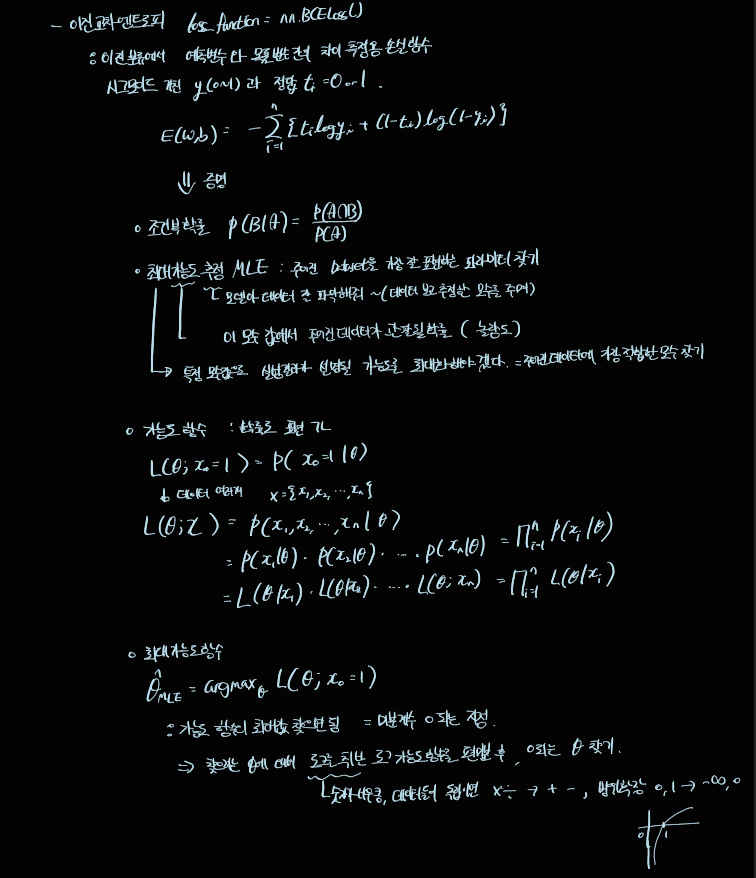 - 이진교차엔트로피 loss_function = nn.BCELoss()
: 이진 분류에서 예측변수와 목표변수간의 차이 측정용 손실함수
시그모이드 거친 y(0~1) 과 정답 ti = 0 or 1.
E(w,b) = -∑ⁿᵢ₌₁{tᵢlogyᵢ + (1-tᵢ)log(1-yᵢ)}
⇓ 증명
∘ 조건부확률 P(B|A) = P(A∩B)/P(A)
∘ 최대가능도 추정 MLE : 주어진 Dataset을 가장 잘 표현하는 파라미터 찾기
모델아 데이터 잘 파악해줘 ~ (데이터 보고 추정한 모수를 주며)
이 모수 값에서 주어진 데이터가 관찰될 확률 (
→ 특정 모수값으로 실험결과가 설명될 가능도를 최대화해야겠다. = 주어진 데이터에 가장 적합한 모수 찾기
∘ 가능도 함수 : 확률로 표현 가
L(θ; x₀=1) = P(x₀=1|θ)
↳ 데이터 여러개 x = {x₁,x₂,⋯,xₙ}
L(θ;x) = P(x₁,x₂,⋯,xₙ|θ)
= P(x₁|θ)·P(x₂|θ)·⋯·P(xₙ|θ) = ∏ⁿᵢ₌₁ P(xᵢ|θ)
= L(θ|x₁)·L(θ|x₂)·⋯·L(θ;xₙ) = ∏ⁿᵢ₌₁ L(θ|xᵢ)
∘ 최대가능도함수
θ̂_MLE = argmax_θ L(θ; x₀=1)
: 가능도 함수의 최대값 찾으면 됨 = 미분계수 0되는 지점.
⇒ 찾으려는 θ에 대해 로그 취한 로그가능도함수를 편미분 후, 0되는 θ 찾기.
숫자 데이터들이 독립이면 ×÷ → + -, 범위확장 0,1 → -∞,0
0 1